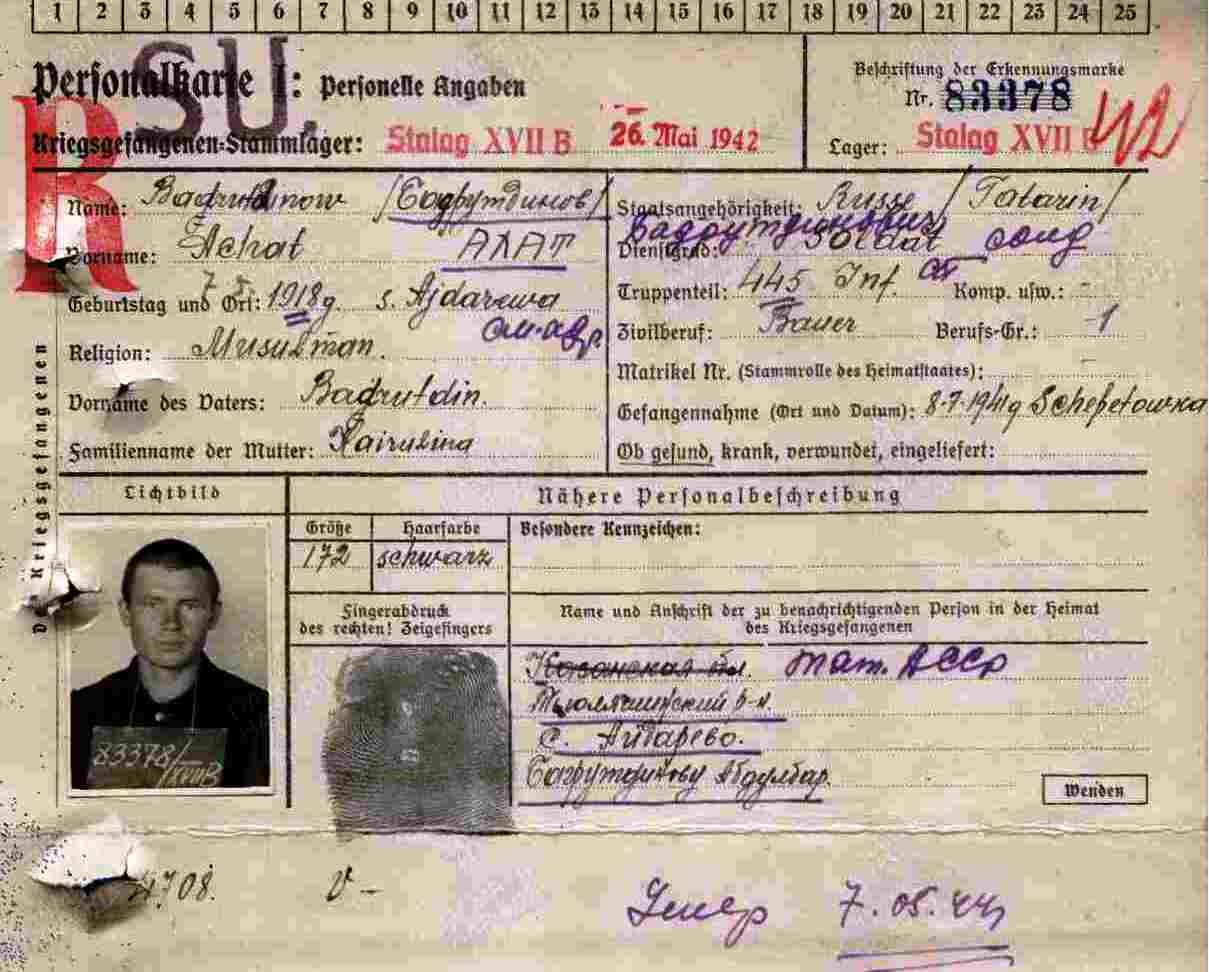 1 2 3 4 5 6 7 8 9 10 11 12 13 14 15 16 17 18 19 20 21 22 23 24 25
SU.
R
Personalkarte I: Personelle Angaben
Kriegsgefangenen-Stammlager: Stalag XVII B 26. Mai 1942
Beschriftung der Erkennungsmarke
Nr. 83378
Lager: Stalag XVII B
Name: Badrutdinow /Бадрутдинов/
Vorname: Achat АХАТ
Geburtstag und Ort: 7 5. 1918g. s. Ajdarewa
Religion: Musulman.
Vorname des Vaters: Badrutdin.
Familienname der Mutter: Hairulina
Staatsangehörigkeit: Russe /Tatarin/
Бадрутдинович
Dienstgrad: Soldat солд
Truppenteil: 445 Inf. Komp. usw.: -
Zivilberuf: Bauer Berufs-Gr.: -1
Matrikel Nr. (Stammrolle des Heimatstaates): -
Gefangennahme (Ort und Datum): 8.7.1941g Schepetowka
Ob gesund, krank, verwundet, eingeliefert:
Kriegsgefangenen
Lichtbild
Nähere Personalbeschreibung
Größe Haarfarbe Besondere Kennzeichen:
172 schwarz
Fingerabdruck
des rechten! Zeigefingers
Name und Anschrift der zu benachrichtigenden Person in der Heimat
des Kriegsgefangenen
Казанская обл. Тат. АССР
Тюлячинский р-н.
с. Айдарево.
Бадрутдинову Абдулбар.
83378/
XVIIB
Wenden
V -
Умер 7.05.44г